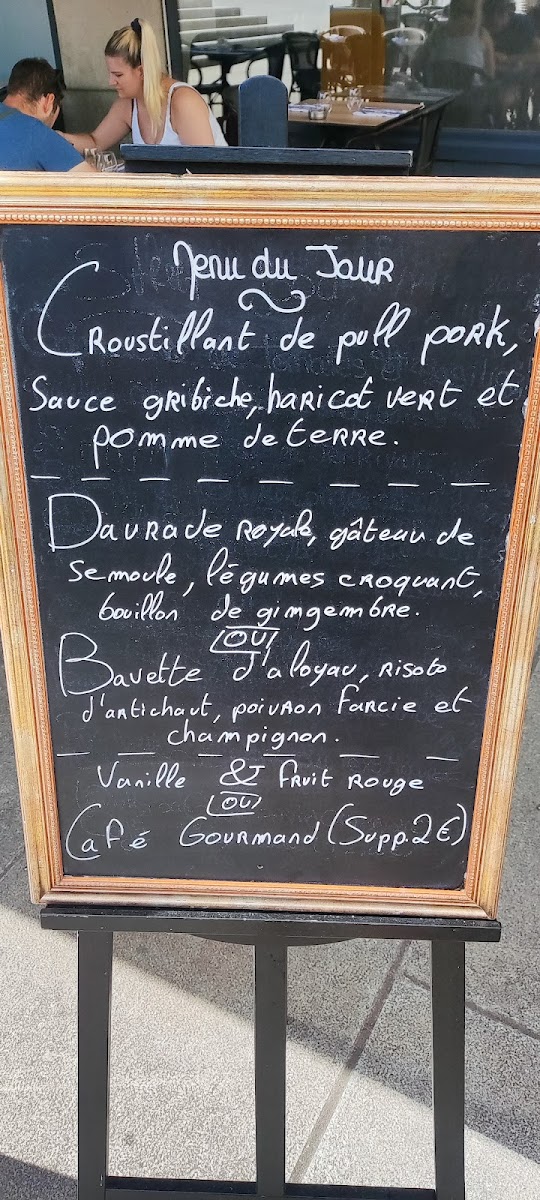 Menu du Jour
Croustillant de pull pork,
Sauce gribiche, haricot vert et
pomme de terre.
Daurade royale, gâteau de
semoule, légumes croquant,
bouillon de gimgembre.
OU
Bavette d'aloyau, risoto
d'artichaut, poivron farcie et
champignon.
Vanille & fruit rouge
OU
Café Gourmand (Supp. 2€)